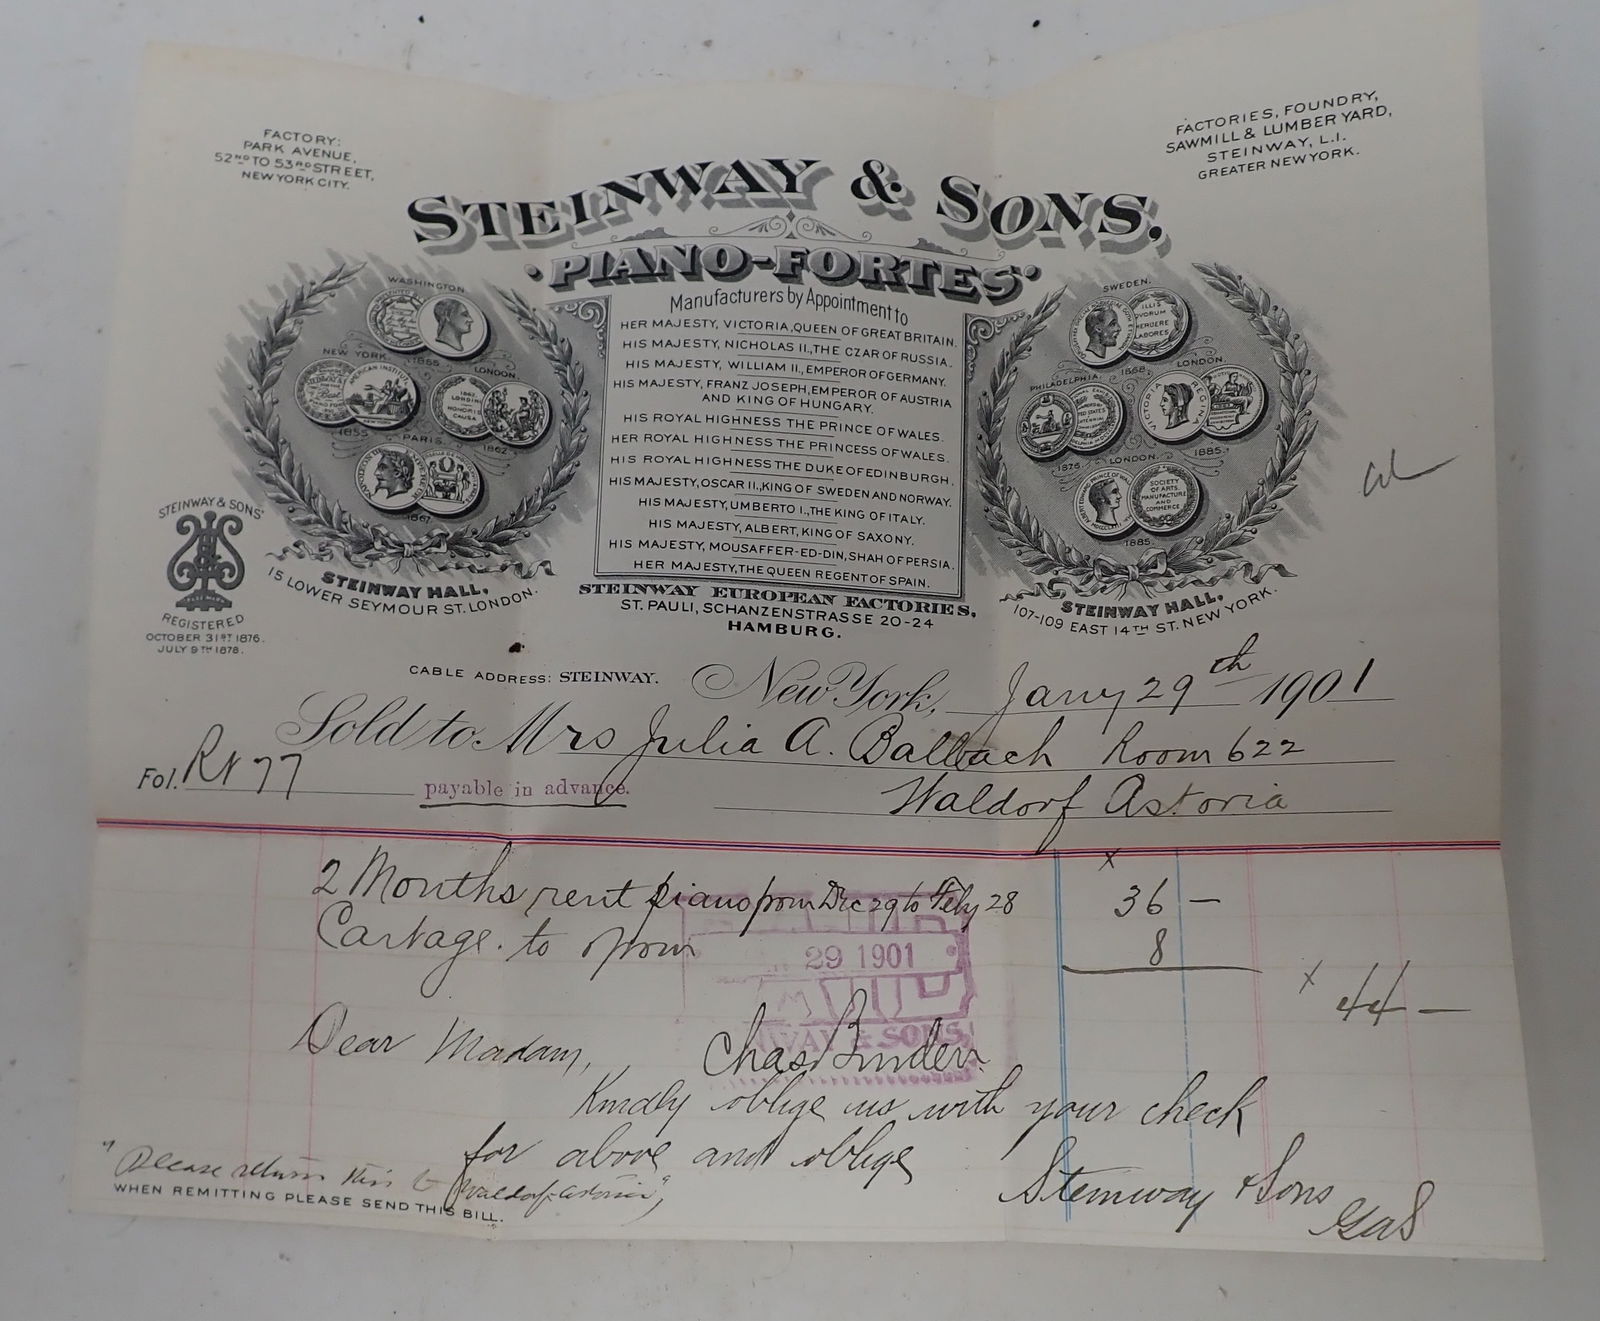 FACTORY:
PARK AVENUE,
52ND TO 53RD STREET,
NEW YORK CITY.
FACTORIES, FOUNDRY,
SAWMILL & LUMBER YARD,
STEINWAY, L.I.
GREATER NEW YORK.
STEINWAY & SONS,
"PIANO-FORTES"
Manufacturers by Appointment to
HER MAJESTY, VICTORIA, QUEEN OF GREAT BRITAIN.
HIS MAJESTY, NICHOLAS II., THE CZAR OF RUSSIA.
HIS MAJESTY, WILLIAM II., EMPEROR OF GERMANY.
HIS MAJESTY, FRANZ JOSEPH, EMPEROR OF AUSTRIA
AND KING OF HUNGARY.
HIS ROYAL HIGHNESS THE PRINCE OF WALES.
HER ROYAL HIGHNESS THE PRINCESS OF WALES.
HIS ROYAL HIGHNESS THE DUKE OF EDINBURGH.
HIS MAJESTY, OSCAR II., KING OF SWEDEN AND NORWAY.
HIS MAJESTY, UMBERTO I., THE KING OF ITALY.
HIS MAJESTY, ALBERT, KING OF SAXONY.
HIS MAJESTY, MOUSAFFER-ED-DIN, SHAH OF PERSIA.
HER MAJESTY, THE QUEEN REGENT OF SPAIN.
WASHINGTON
1855
NEW YORK
AMERICAN INSTITUTE
NEW YORK
1855
LONDON
1862
LONDINI
HONORIS
CAUSA
1862
PARIS
1867
SWEDEN.
ILLIS
QVORUM
MERUERE
LABORES
1868
PHILADELPHIA
1876
LONDON.
VICTORIA REGINA
1885.
LONDON.
SOCIETY
OF ARTS,
MANUFACTURE
AND
COMMERCE
1885.
STEINWAY & SONS'
TRADE MARK
REGISTERED
OCTOBER 31ST 1876.
JULY 9TH 1878.
STEINWAY HALL,
15 LOWER SEYMOUR ST. LONDON.
STEINWAY EUROPEAN FACTORIES,
ST. PAULI, SCHANZENSTRASSE 20-24
HAMBURG.
STEINWAY HALL,
107-109 EAST 14TH ST. NEW YORK.
CABLE ADDRESS: STEINWAY.
New York, Jany 29th 1901
Sold to Mrs Julia A. Balbach Room 622
Fol. RN 77 payable in advance. Waldorf Astoria
2 Months rent piano from Dec 29 to Feby 28 36 —
Cartage. to & from 8
44 —
29 1901
PAID
STEINWAY & SONS,
Dear Madam,
Kindly oblige us with your check
for above and oblige
Steinway & Sons
"Please return this to Waldorf-Astoria"
WHEN REMITTING PLEASE SEND THIS BILL.